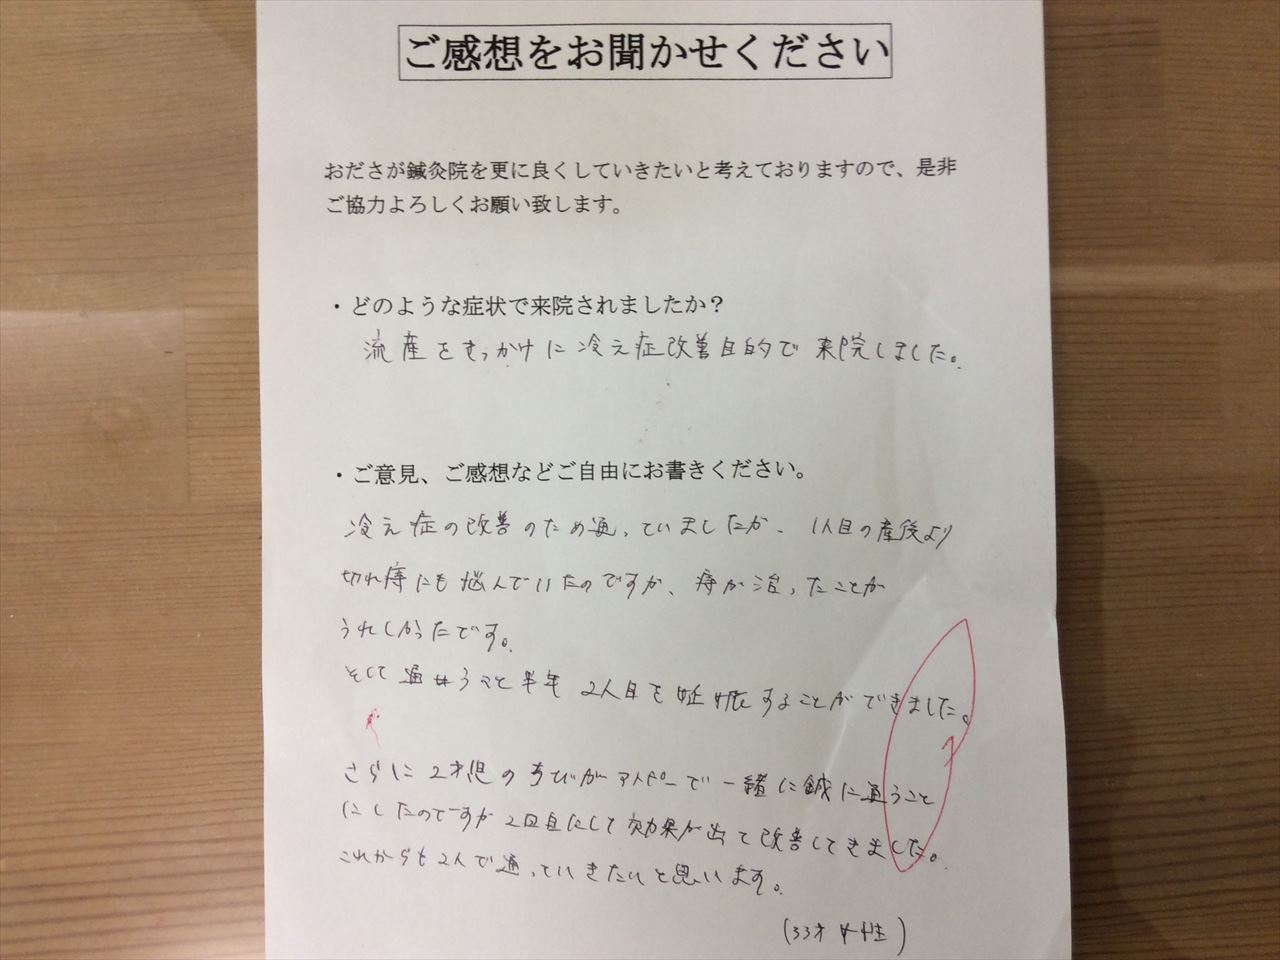 ご感想をお聞かせください
おださが鍼灸院を更に良くしていきたいと考えておりますので、是非
ご協力よろしくお願い致します。
・どのような症状で来院されましたか？
流産をきっかけに冷え症改善目的で来院しました。
・ご意見、ご感想などご自由にお書きください。
冷え症の改善のため通っていましたが、1人目の産後より
切れ痔にも悩んでいたのですが、痔が治ったことが
うれしかったです。
そして通うこと半年 2人目を妊娠することができました。
さらに2才児の ちびがアトピーで一緒に鍼に通うこと
にしたのですが2回目にして効果が出て改善してきました。
これからも2人で通っていきたいと思います。
(33才 女性)